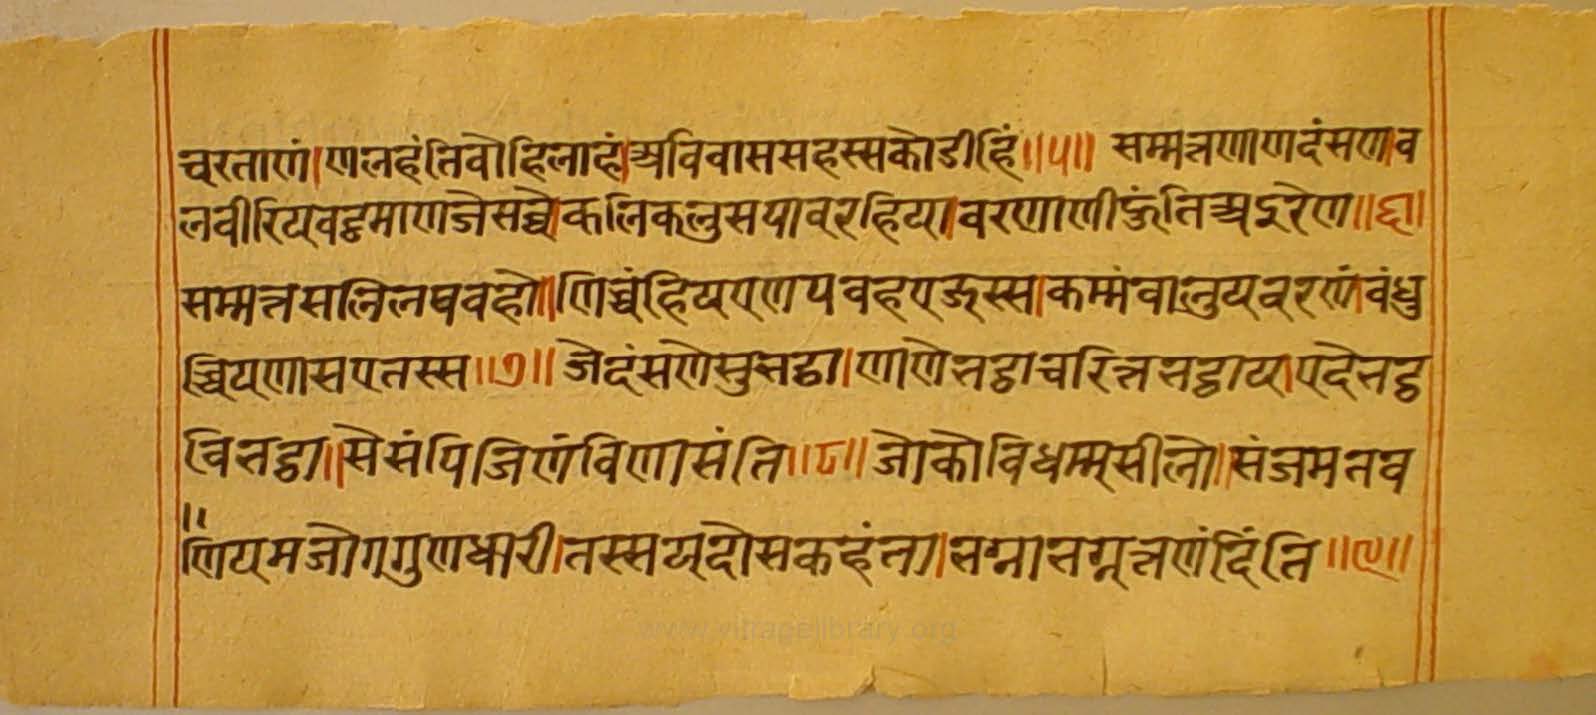 चरताणं।णलहंतिवोहिलाहं।अविवाससहस्सकोडीहिं॥५॥ सम्मत्तणाणदंसणव
लवीरियवट्ठमाणजेसव्वे।कलिकलुसयावरहिया।वरणाणीऊंतिअइरेण॥६॥
सम्मत्तसलिलपवहो॥णिच्चंहियएणयवहएजस्स।कम्मंवालुयवरणंवंधु
च्चियणासएतस्स॥७॥ जेदंसणेसुनट्ठा।णाणेनट्ठाचरित्तनट्ठाय।एदेनट्ठ
विनट्ठा॥सेसंपिजिणंविणासंति॥८॥ जोकोविधम्मसीलो॥संजमतव
णियमजोगगुणधारी।तस्सयदोसकहंता।नग्गानग्गत्तणंदिंति॥९॥
www.vitragelibrary.org